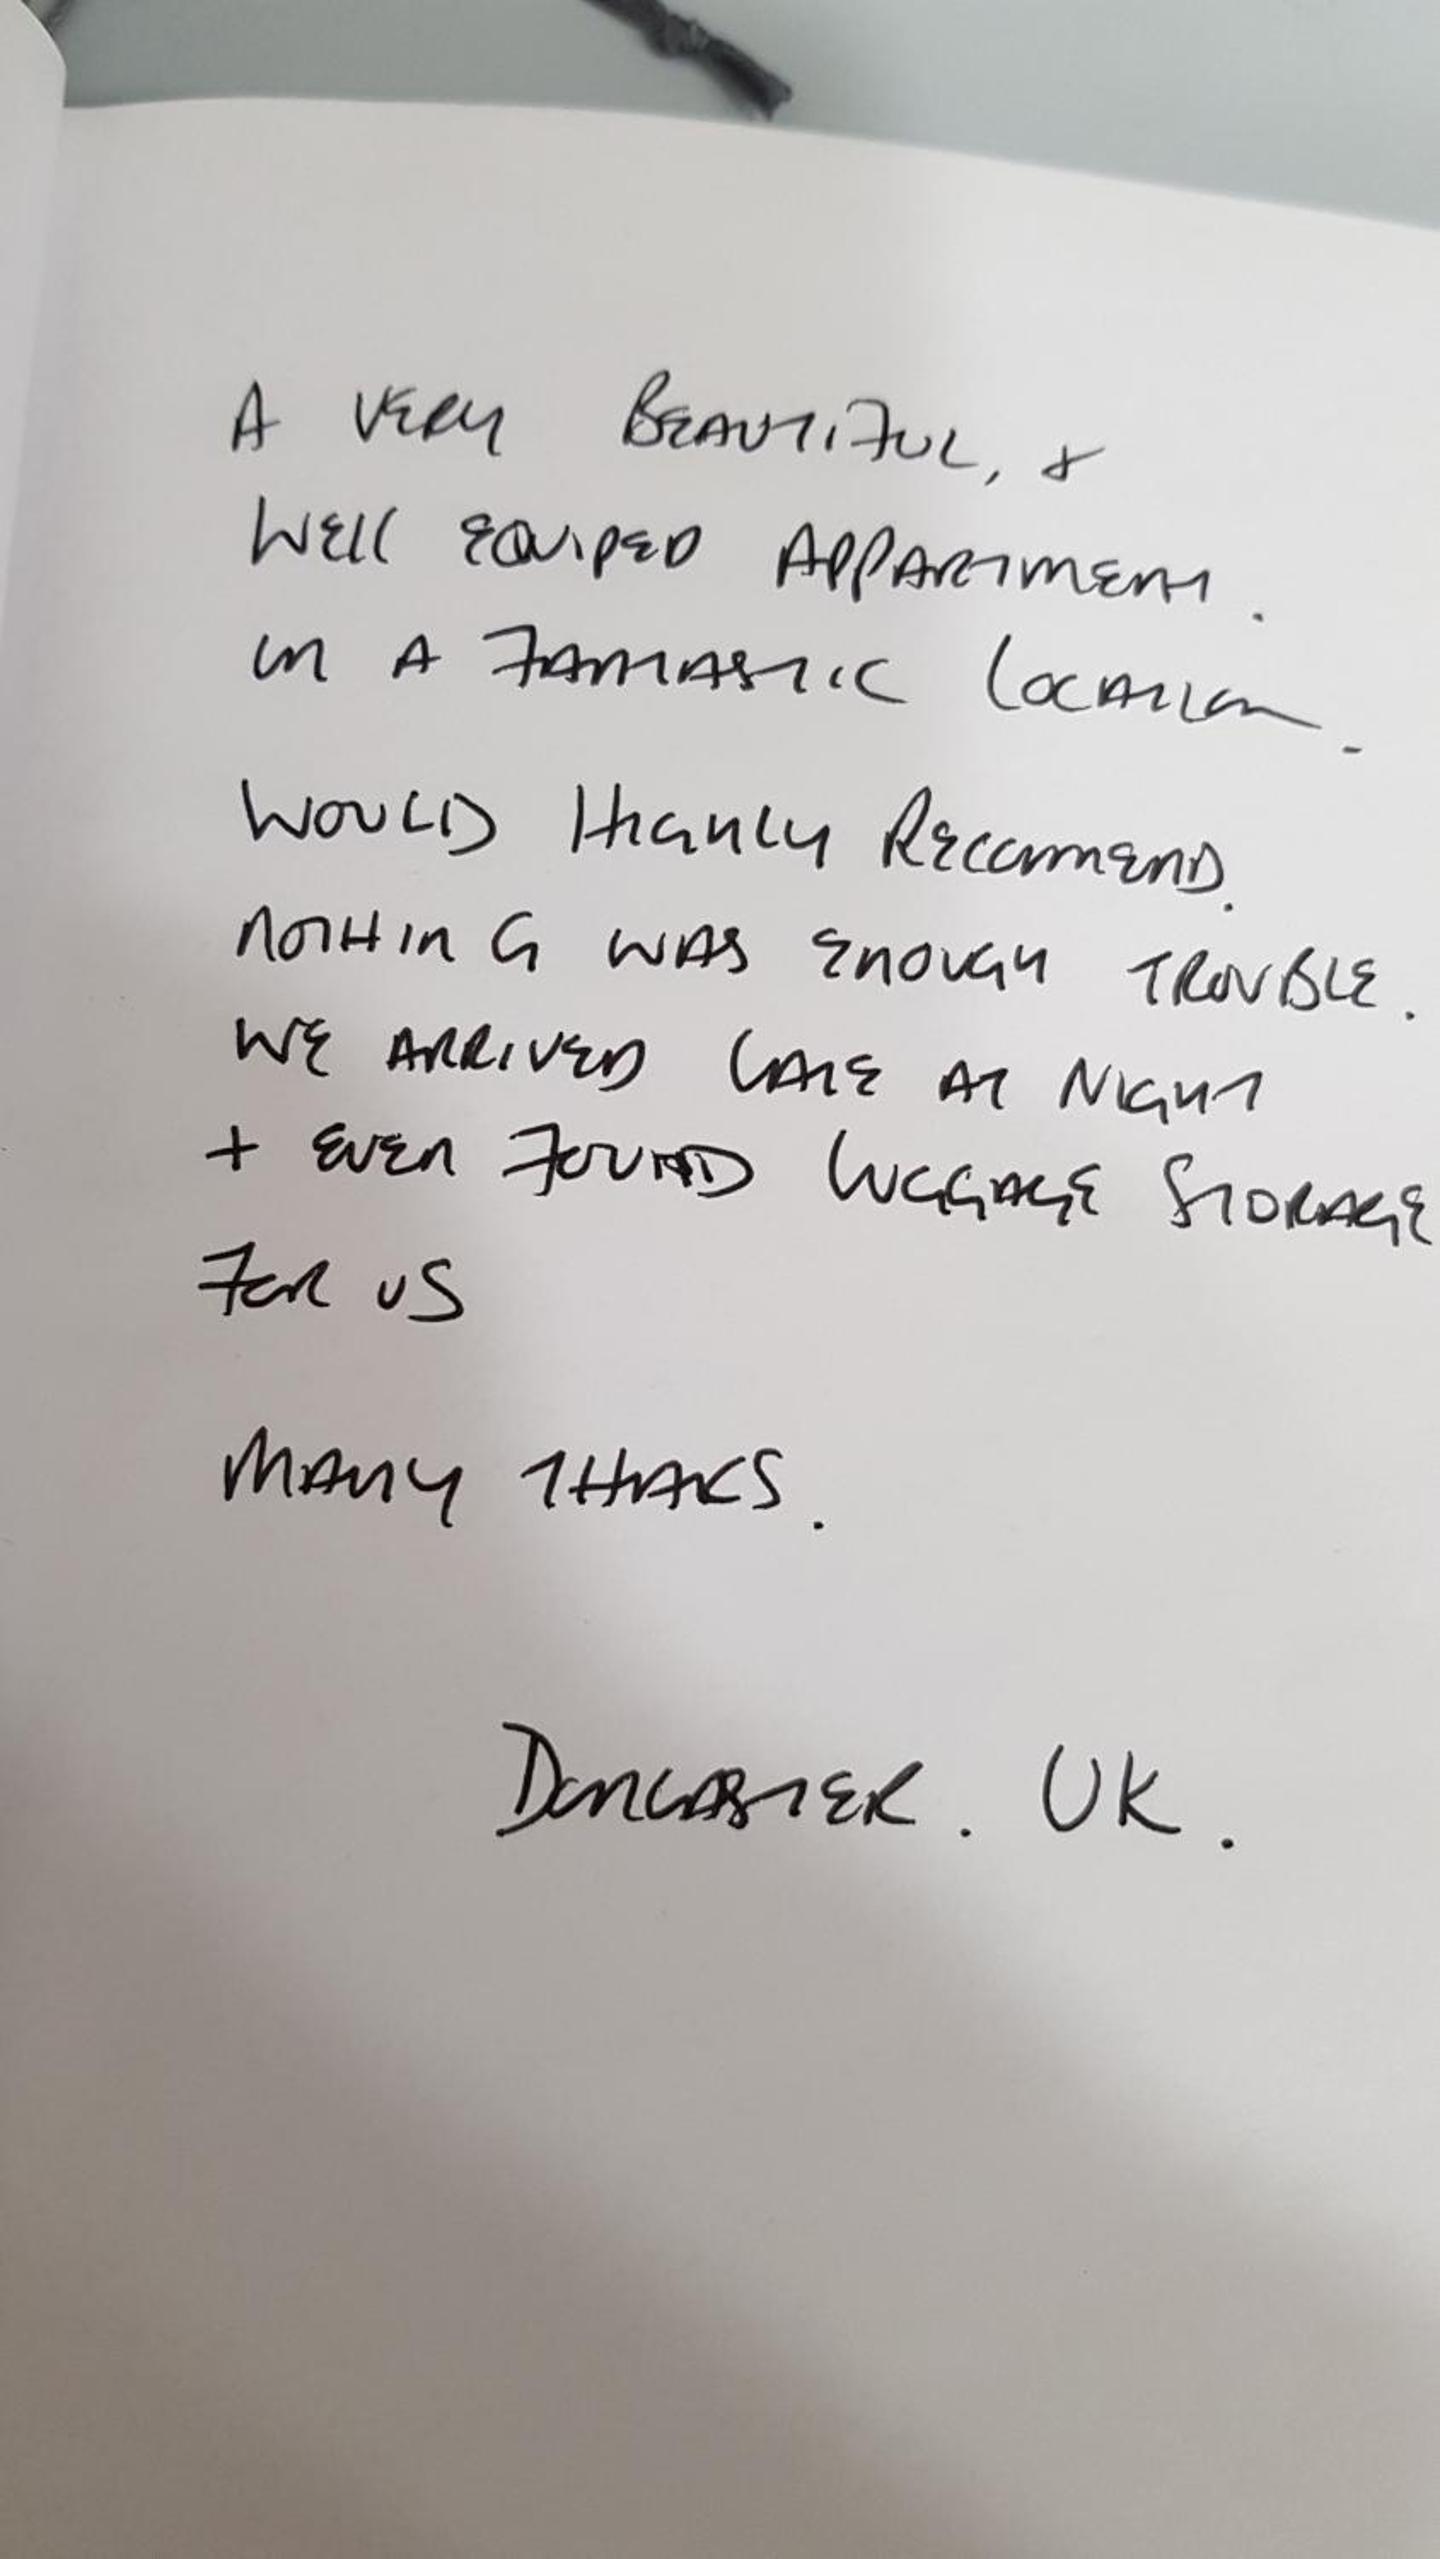 A VERY BEAUTIFUL, &
WELL EQUIPED APPARTMENT.
IN A FANTASTIC LOCATION.
WOULD HIGHLY RECOMMEND.
NOTHING WAS ENOUGH TROUBLE.
WE ARRIVED LATE AT NIGHT
+ EVEN FOUND LUGGAGE STORAGE
FOR US
MANY THAKS.
DONCASTER. UK.